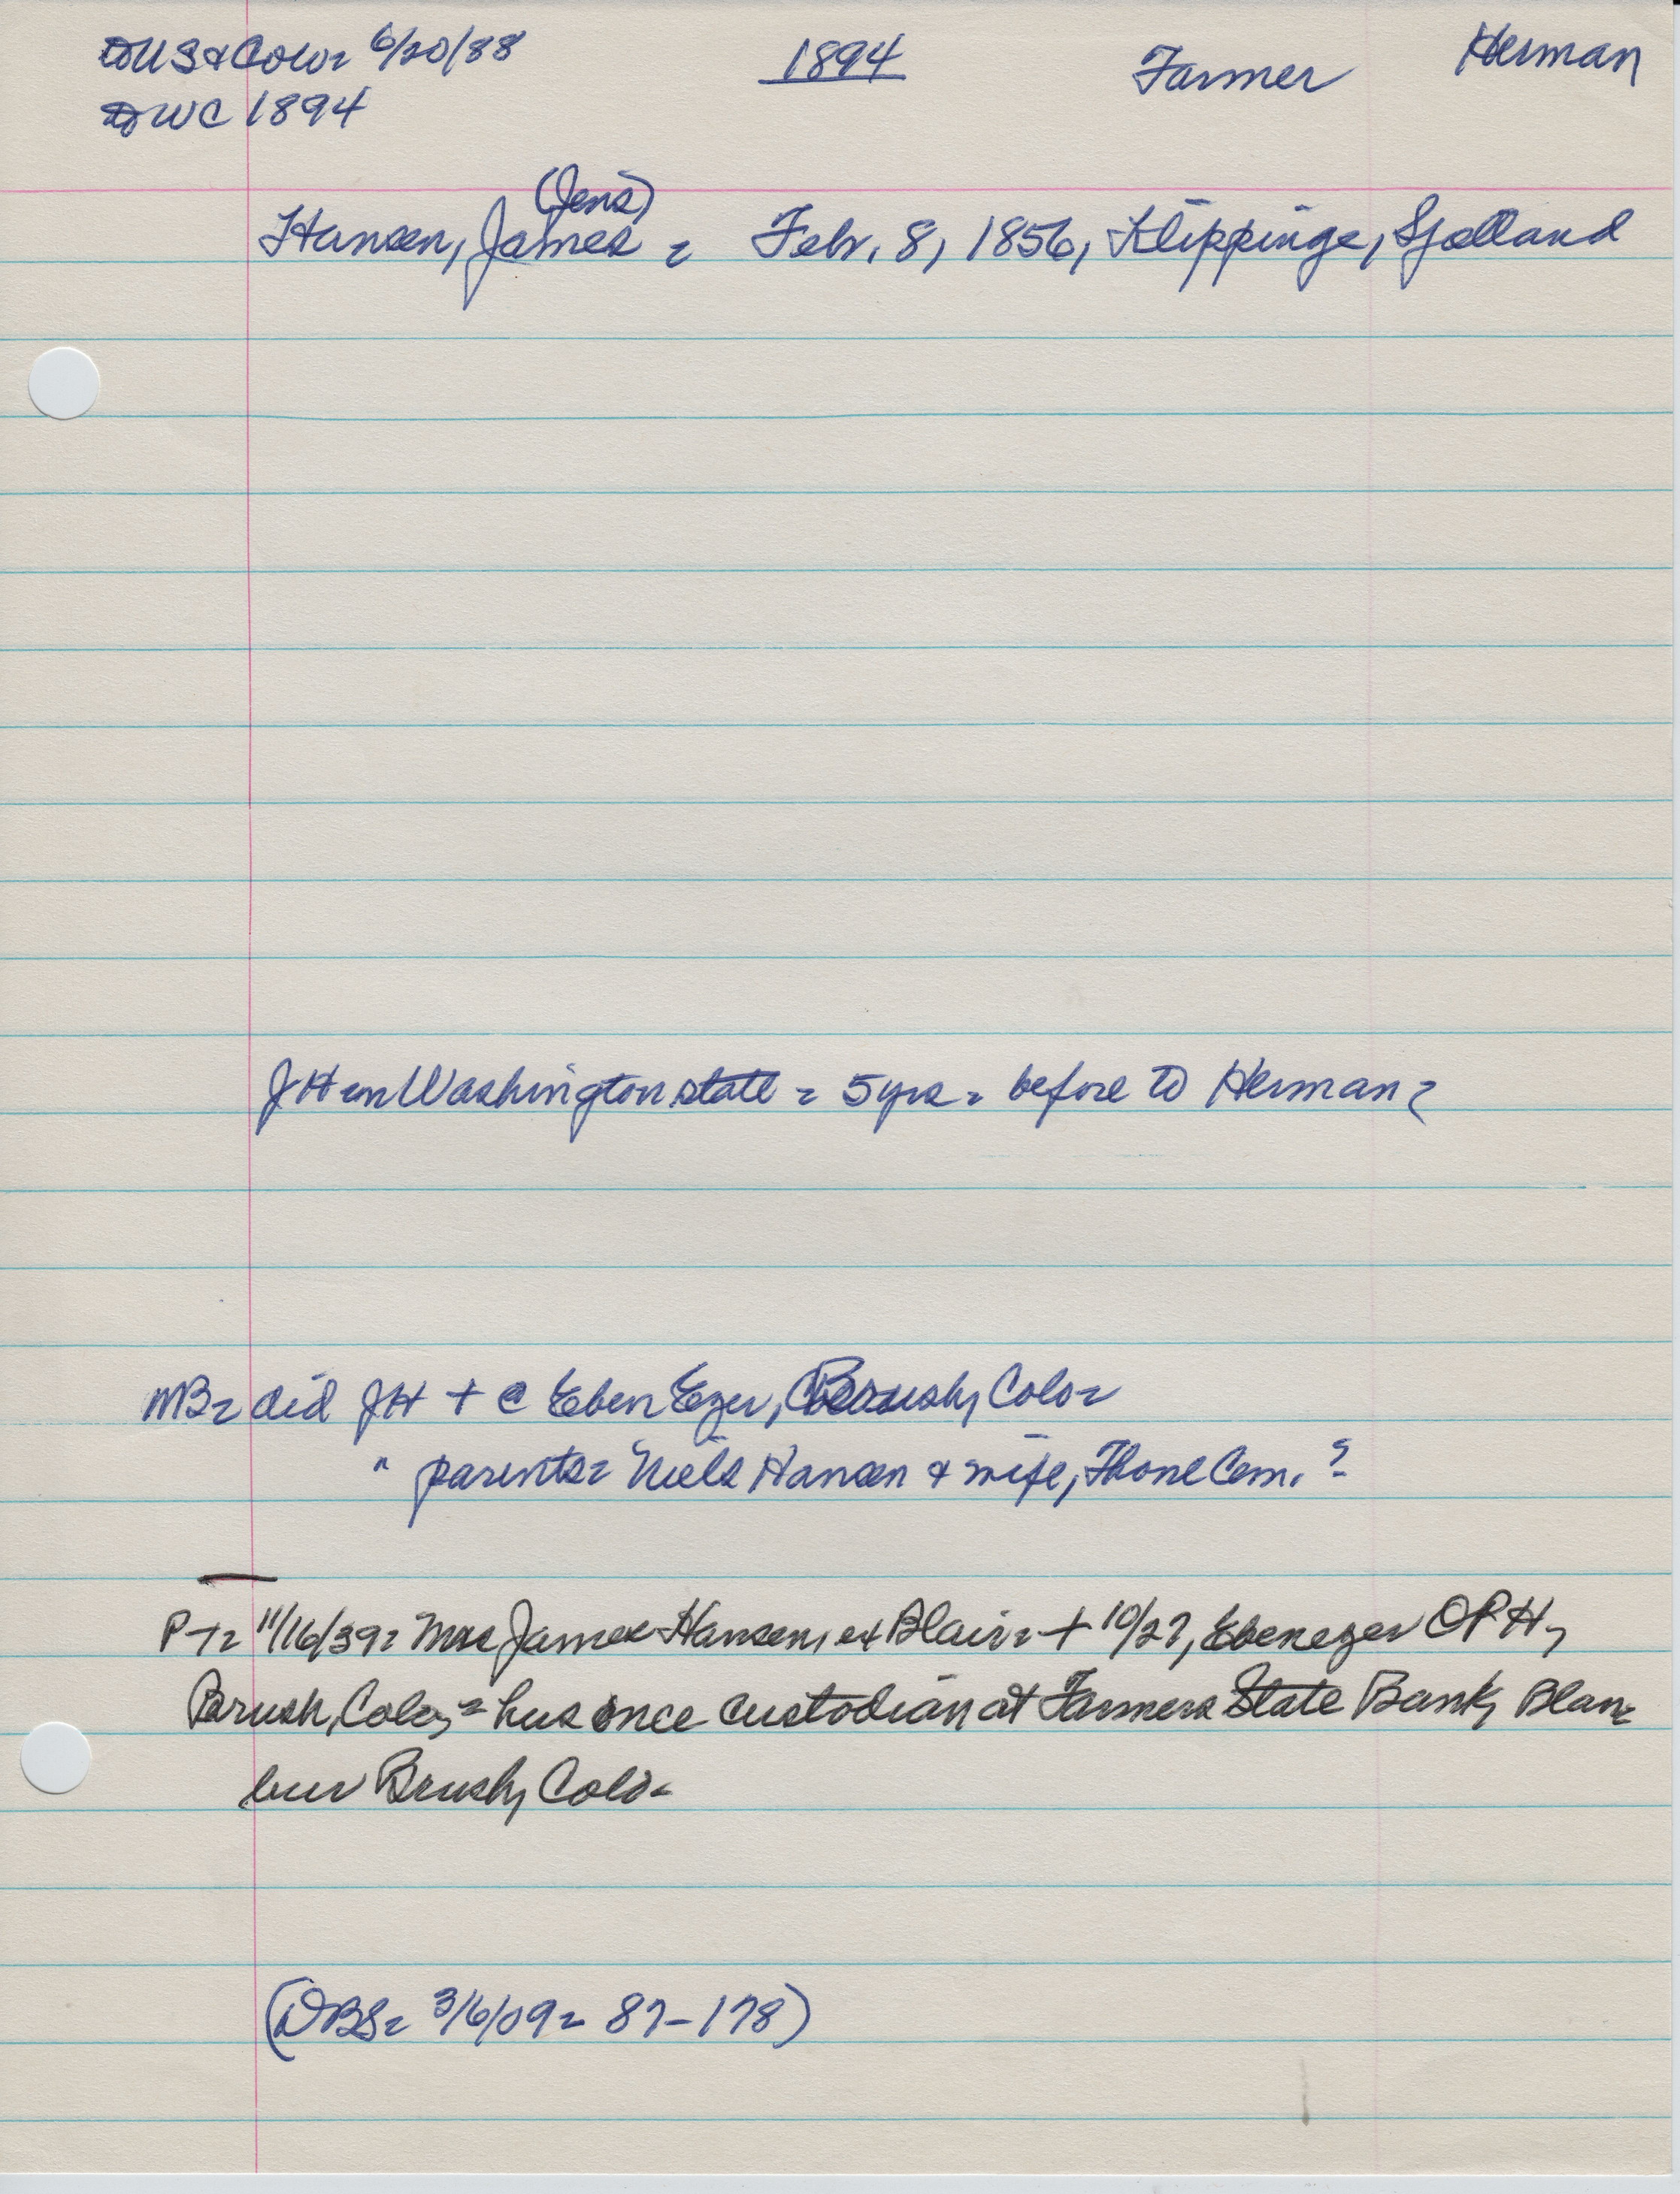 to US & Colo = 6/20/88 1894 Farmer Herman
to WC 1894
(Jens)
Hansen, James = Febr. 8, 1856, Klippinge, Sjælland
JH in Washington state = 5 yrs = before to Herman =
MB = did JH + @ Eben Ezer, Brush, Colo =
" parents = Niels Hansen & wife, Thone Cem. ?
P-T = 11/16/39 = Mrs James Hansen, ex Blair = + 10/27, Ebenezer OPH,
Brush, Colo, = hus once custodian at Farmers State Bank, Blair =
bur Brush, Colo =
(DBS = 3/6/09 = 87-178)